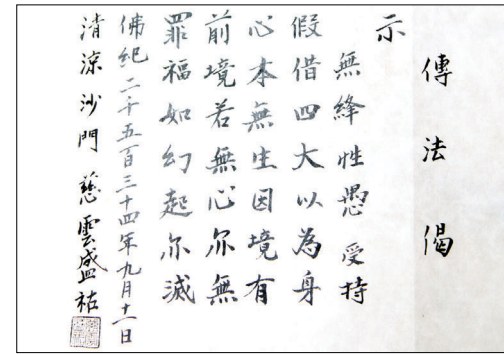 傳法偈
示
無絳性愚受持
假借四大以為身
心本無生因境有
前境若無心亦無
罪福如幻起亦滅
佛紀二千五百三十四年九月十一日
清涼沙門慈雲盛祜